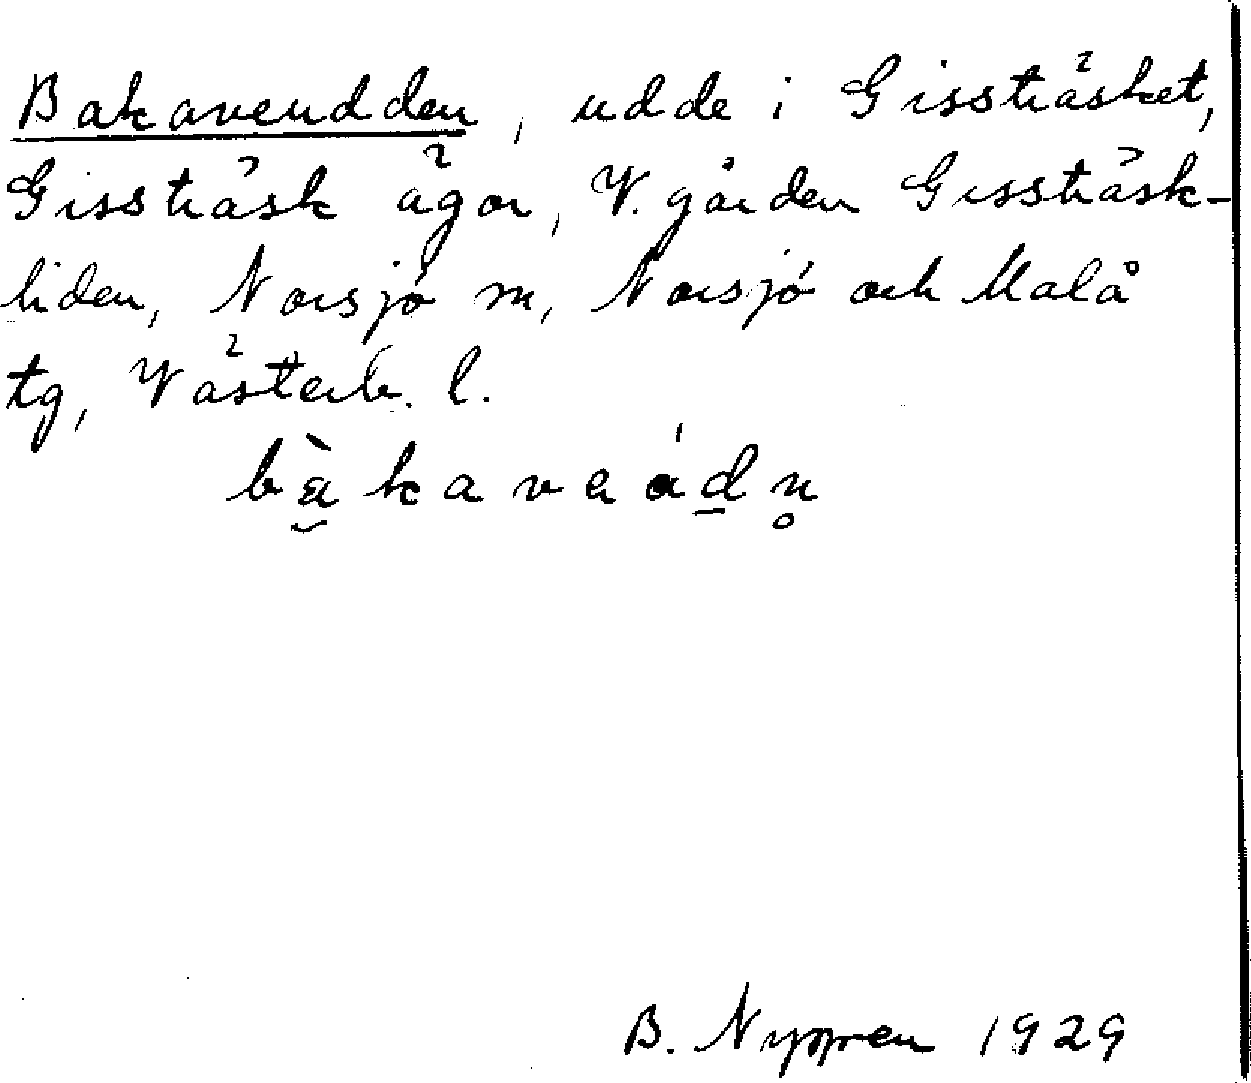 Bakaveudden, udde i Gissträsket,
Gissträsk ägor, V. gården Gissträsk-
liden, Norsjö sn, Norsjö och Malå
tg, Västerb. l.
B. Nyppen 1929